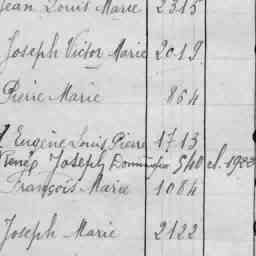 Jean Louis Marie 2315
Joseph Victor Marie 2019
Pierre Marie 864
Eugène Louis Pierre 1713
Joseph Dominique 540 cl. 1922
François Marie 1084
Joseph Marie 2122